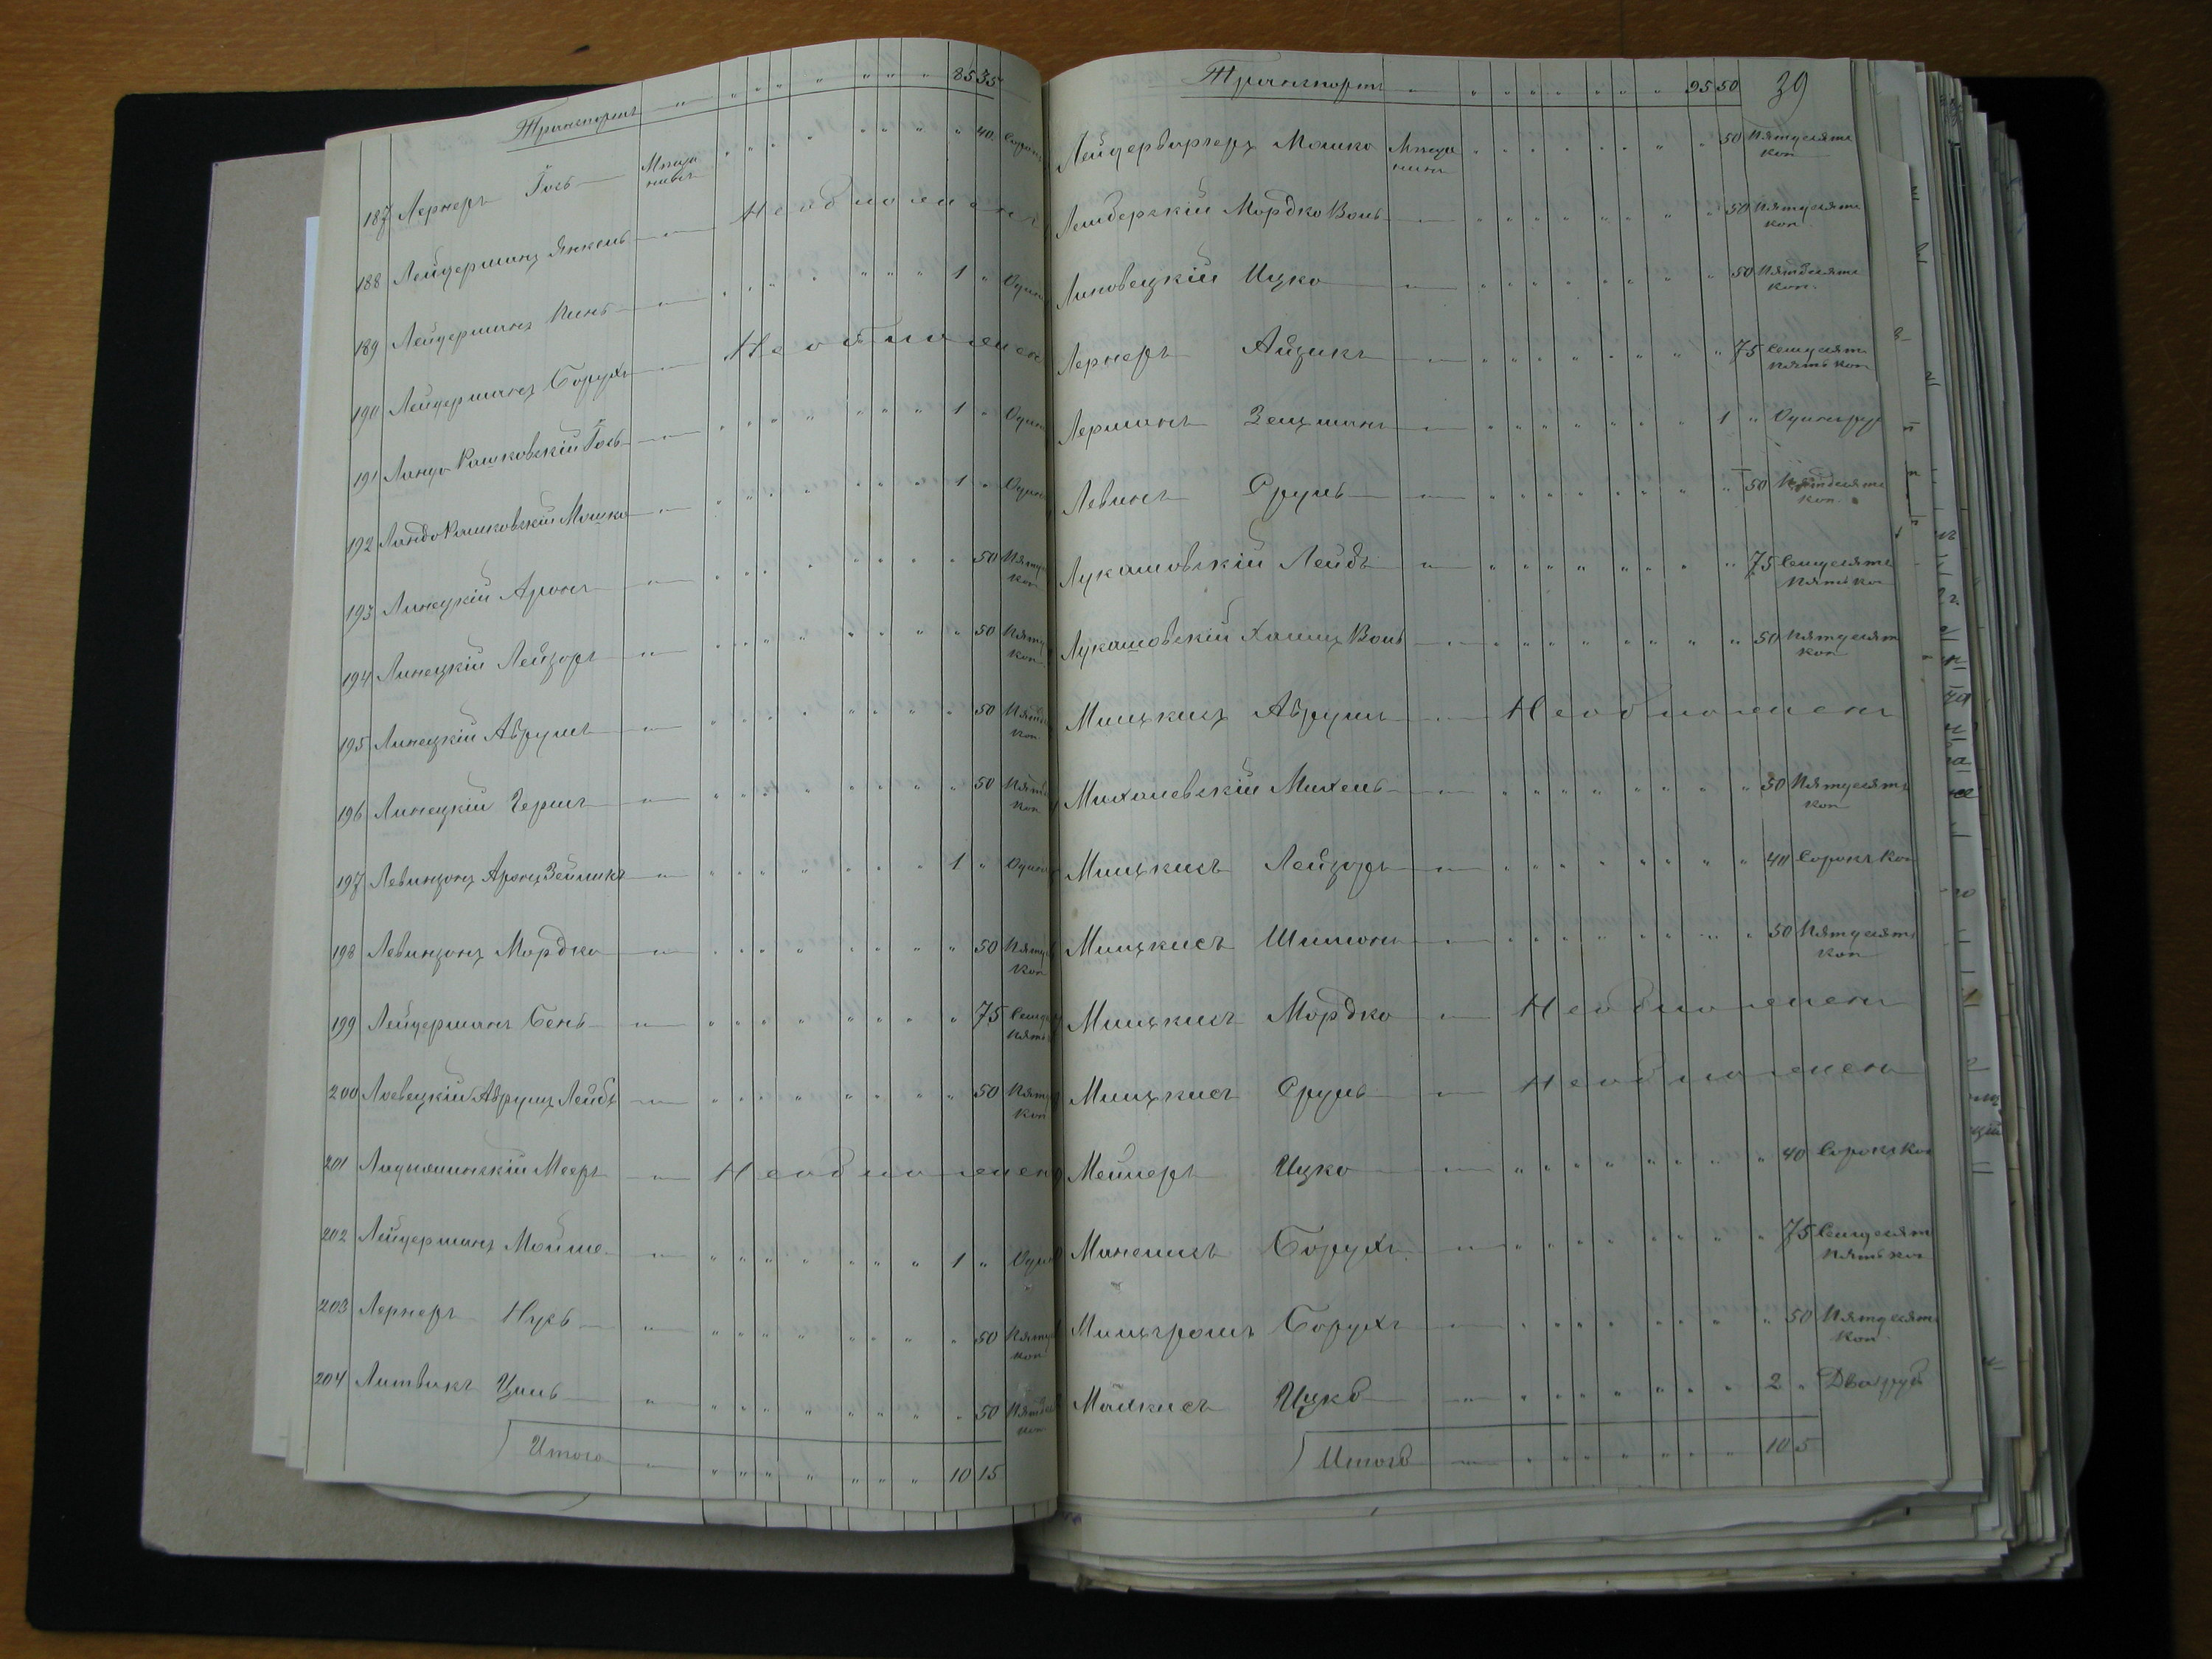 Транспортъ " " " " " " " " 85 35
187 Лернеръ Іось Мѣща нинъ " " " " " " " " 40 Сорокъ
188 Лейдерманъ Янкель Необложенъ
189 Лейдерманъ Пинь " " " " " " " 1 " Одинъ
190 Лейдерманъ Борухъ Необложен
191 Ландо Рашковскій Іось " " " " " " " 1 " Один
192 Ландо Рашковскій Мошко " " " " " " " 1 " Один
193 Линецкій Аронъ " " " " " " " " 50 Пятд
коп
194 Линецкій Лейзоръ " " " " " " " " 50 Пятд
коп
195 Линецкій Аврумъ " " " " " " " " 50 Пятд
коп
196 Линецкій Гершъ " " " " " " " " 50 Пятд
коп
197 Левинзонъ Аронъ Зейликъ " " " " " " " 1 " Один
198 Левинзонъ Мордко " " " " " " " " 50 Пятд
коп
199 Лейдерманъ Бень " " " " " " " " 75 Семд
пять
200 Лоевецкій Аврумъ Лейбъ " " " " " " " " 50 Пятд
коп
201 Мееръ Необложенъ
202 Лейдерманъ Мойше " " " " " " " 1 " Один
203 Лернеръ Нусь " " " " " " " " 50 Пятд
коп
204 Литвакъ Циль " " " " " " " " 50 Пятд
коп
Итого " " " " " " " 10 15
Транспортъ " " " " " " " " 95 50 39
Лейдербергеръ Мошко Мѣща нинъ " " " " " " " " 50 Пятдесятъ
коп
Лемберскій Мордко Воль " " " " " " " " 50 Пятдесятъ
коп
Линовецкій Ицко " " " " " " " " 50 Пятдесятъ
коп.
Лернеръ Айзикъ " " " " " " " " 75 Семдесятъ
пять коп
Лерманъ Зельманъ " " " " " " " 1 " Одинъ руб
Левинъ Сруль " " " " " " " " 50 Пятдесятъ
коп.
Лукашовскій Лейбъ " " " " " " " " 75 Семдесятъ
пять ко
Лукашовскій Хаимъ Воль " " " " " " " " 50 Пятдесят
коп
Мицкисъ Аврумъ Необложенъ
Михалевскій Михель " " " " " " " " 50 Пятдесятъ
коп
Мицкисъ Лейзоръ " " " " " " " " 40 Сорокъ коп
Мицкисъ Шимонъ " " " " " " " " 50 Пятдесятъ
коп
Мицкисъ Мордко Необложенъ
Мицкисъ Сруль Необложенъ
Мейлеръ Ицко " " " " " " " " 40 Сорокъ коп
Манелисъ Борухъ " " " " " " " " 75 Семдесят
пять коп
Борухъ " " " " " " " " 50 Пятдесятъ
коп
Малкисъ Ицко " " " " " " " 2 " Два руб
Итого " " " " " " " 10 5